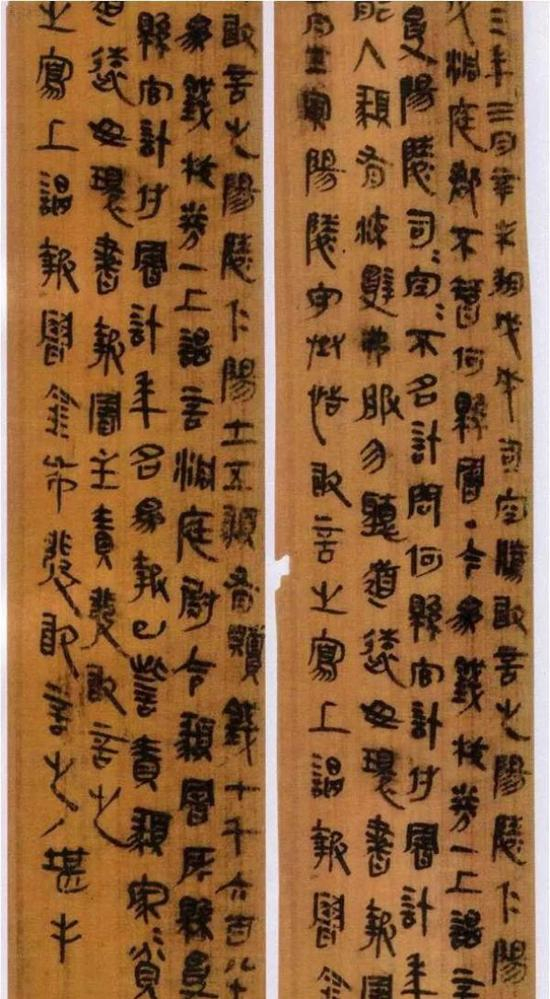 三年三月辛未朔戊戌司空騰敢言之陽陵仁陽
戍洞庭郡不智何縣署·今為錢校券一上謁言
受陽陵司=空=不名計問何縣官計付署計年
能入䫆有流辭弗服勿聽道遠毋環書報署
月壬寅陽陵守丞恬敢言之寫上謁報署金
敢言之陽陵仁陽士五䫆有贖錢七千六百八十
為錢校券一上謁言洞庭尉令䫆署所縣受
縣官計付署計年名為報已訾責䫆家=貧
道遠毋環書報署主責發敢言之
之寫上謁報署金布發敢言之/堪手